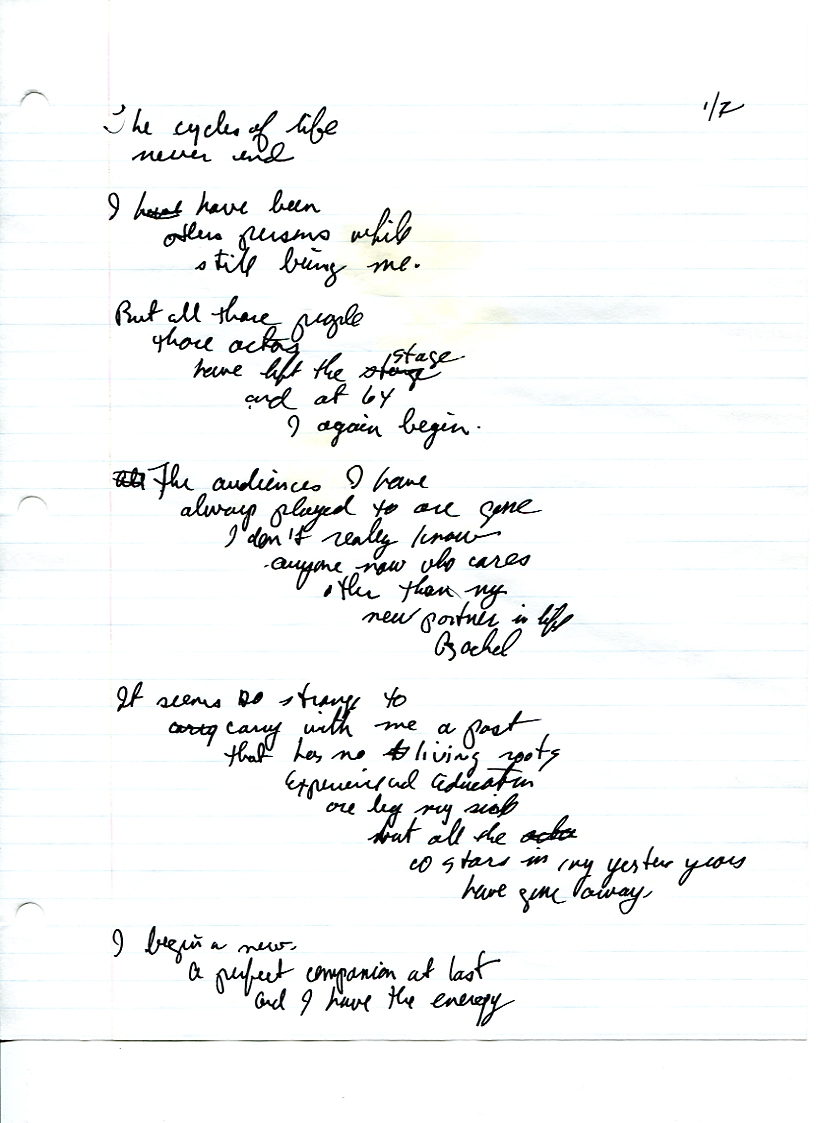 1/2
The cycles of life
never end
I have been
others persons while
still being me.
But all those people
those actors
have left the stage
and at 64
I again begin.
The audiences I have
always played to are gone
I don't really know
anyone now who cares
other than my
new partner in life
Rachel
It seems so strange to
carry with me a past
that has no living roots
Experience and education
are by my side
but all the
co stars in my yester years
have gone away.
I begin a new.
a perfect companion at last
and I have the energy